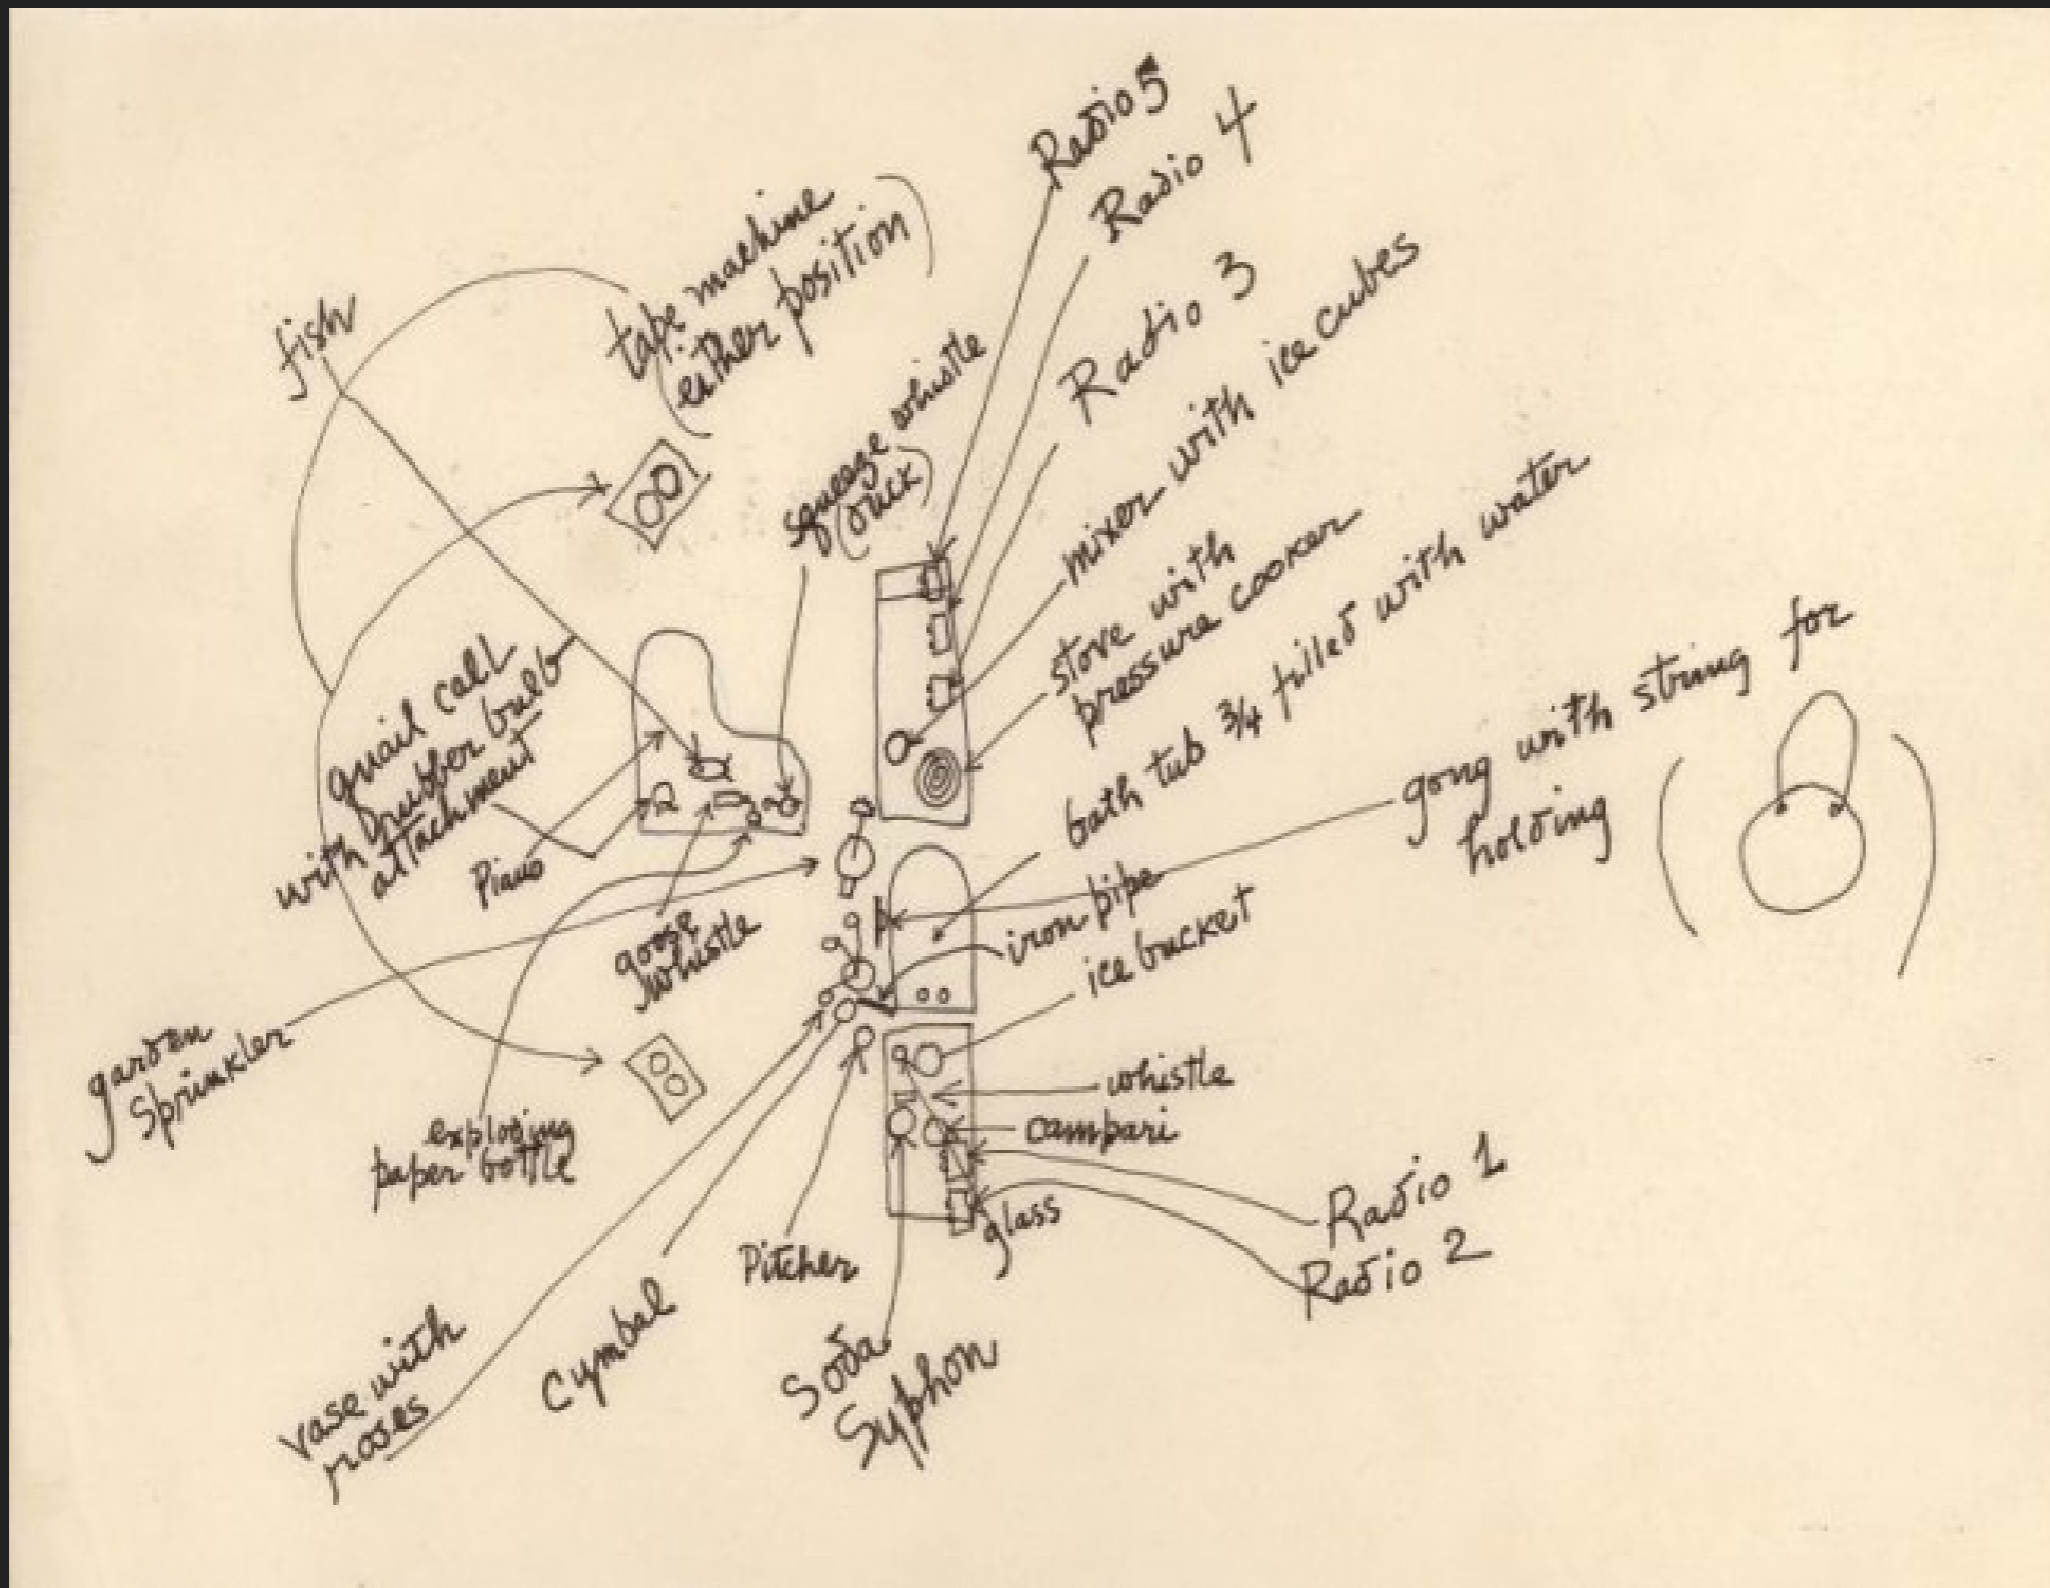 Radio 5
Radio 4
Radio 3
tape machine
either position)
fish
squeeze whistle
(duck)
mixer with ice cubes
stove with
pressure cooker
bath tub 3/4 filled with water
gong with string for
holding
quail call
with rubber bulb
attachment
Piano
goose
whistle
iron pipe
ice bucket
garden
Sprinkler
exploding
paper bottle
whistle
campari
Radio 1
Radio 2
glass
Pitcher
Cymbal
Soda
Syphon
vase with
roses